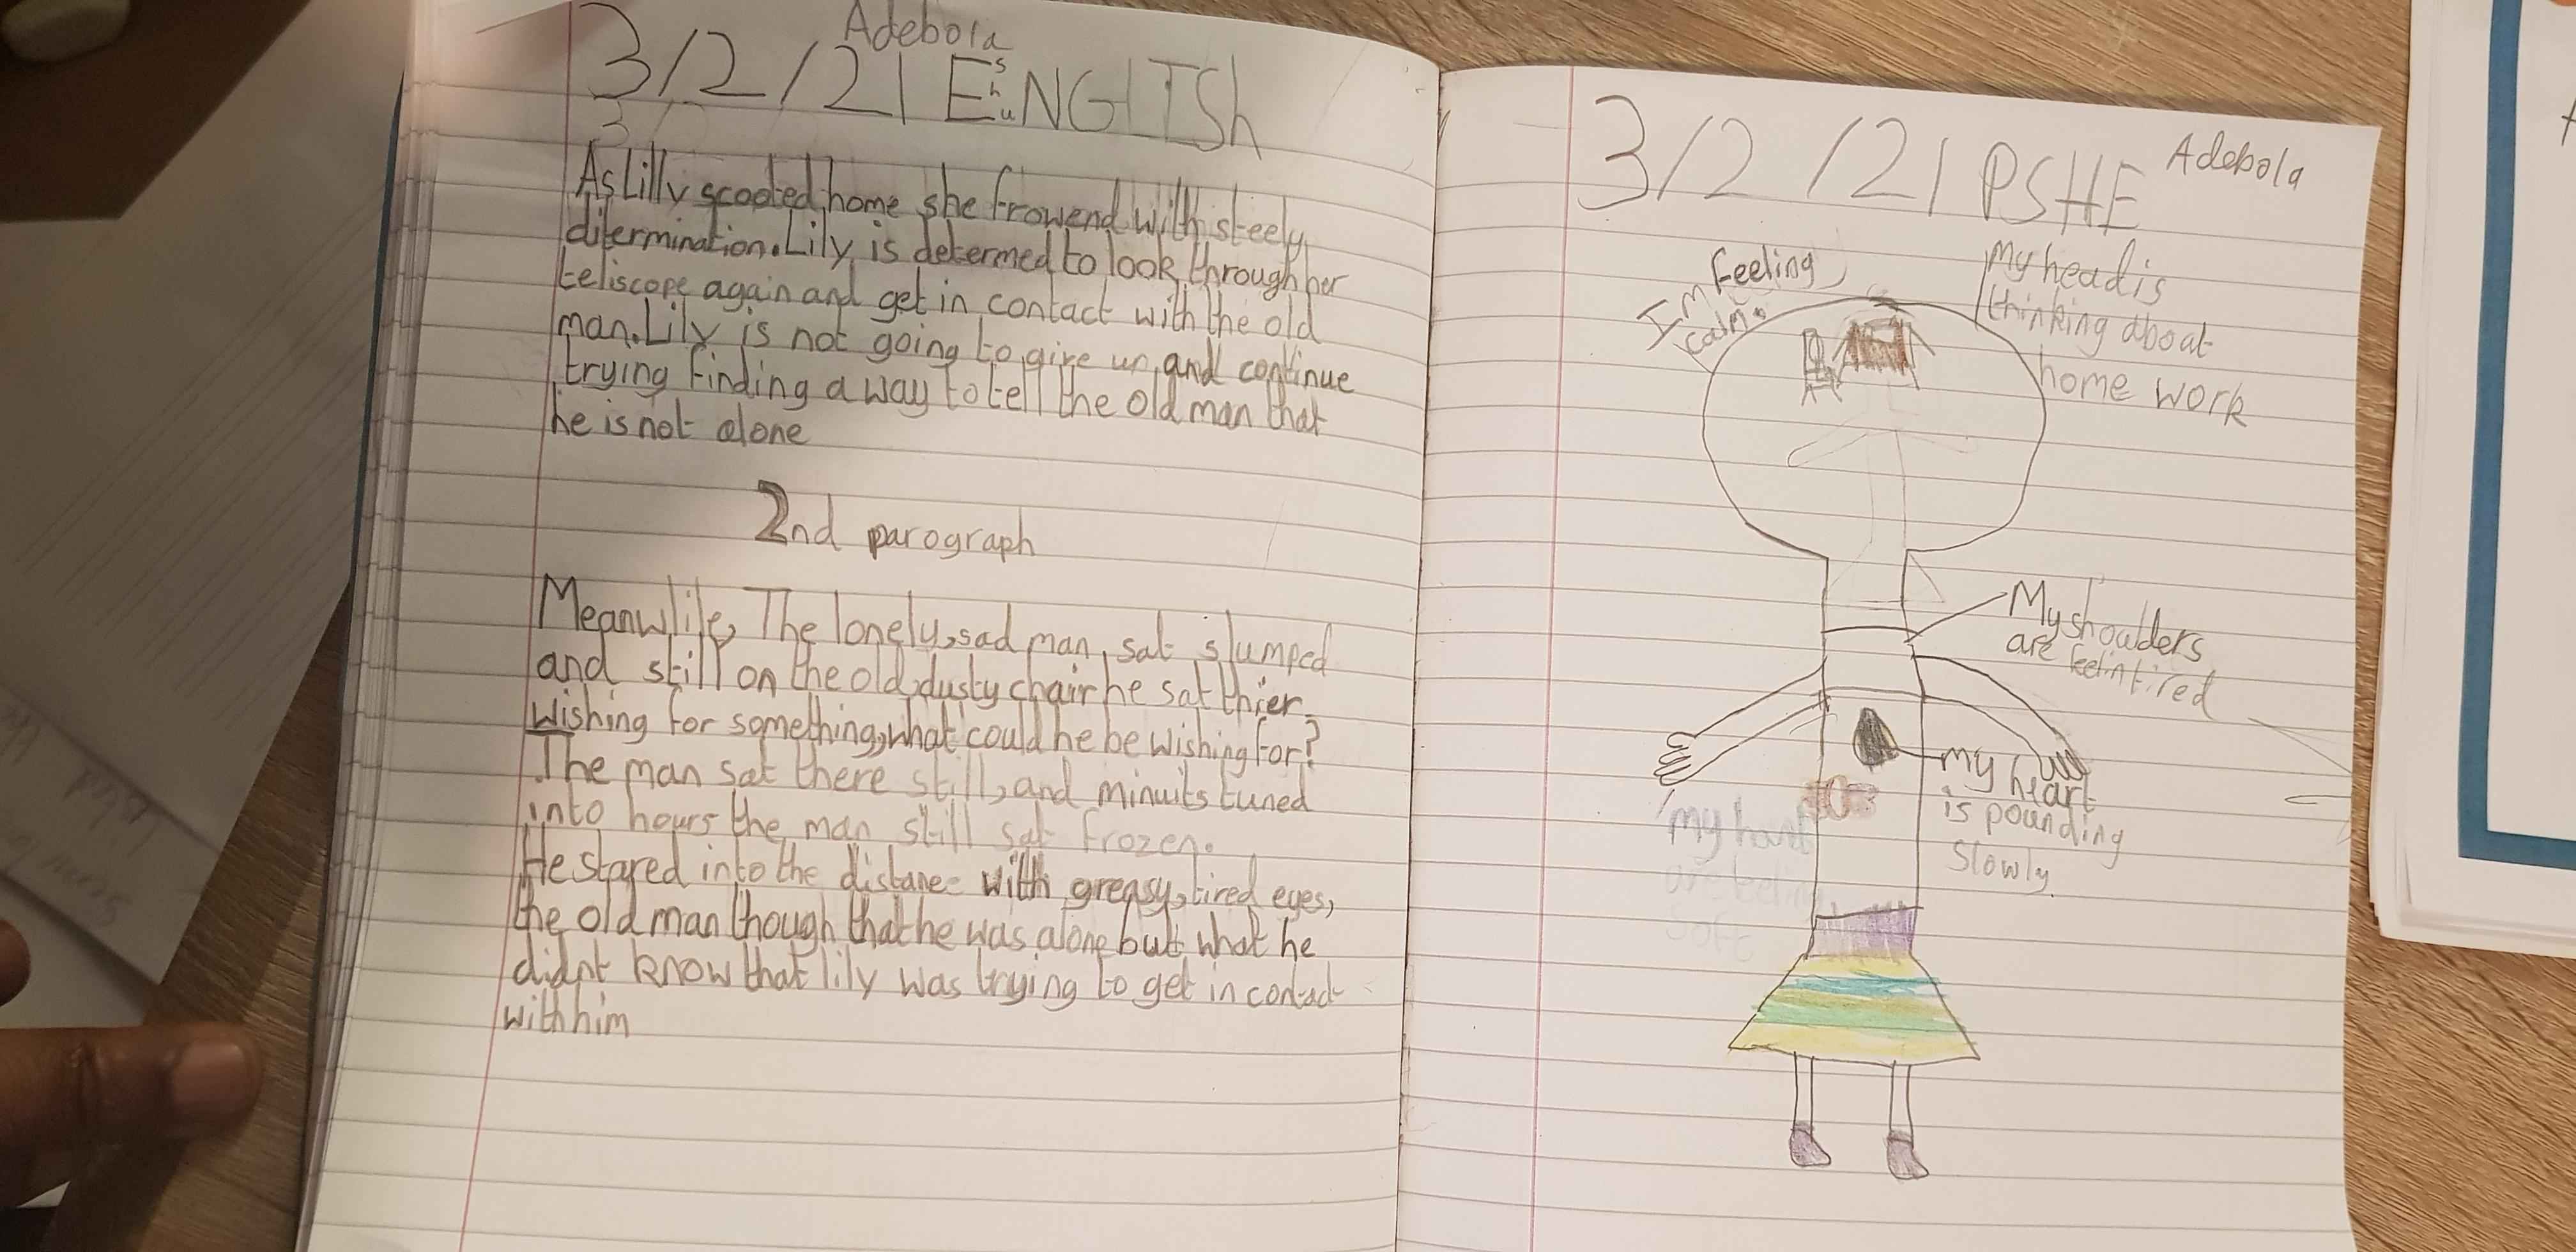 Adebola
3/2/21 ENGLISh
Eshu
As Lilly scooted home she frowend with steely
ditermination. Lily is determed to look through her
teliscope again and get in contact with the old
man. Lily is not going to give up and continue
trying finding a way to tell the old man that
he is not alone
2nd parograph
Meanwlile, The lonely, sad man, sat slumped
and still on the old, dusty chair he sat thier
wishing for something, what could he be wishing for?
The man sat there still, and minuits tuned
into hours the man still sat frozen.
He stared into the distane with greasy, tired eyes,
the old man though that he was alone but what he
didnt know that lily was trying to get in contact
with him
3/2/21 PSHE Adebola
Im feeling
calm.
My head is
thinking about
home work
My shoulders
are feelin tired
my heart
is pounding
slowly
my hand
are feeling
soft